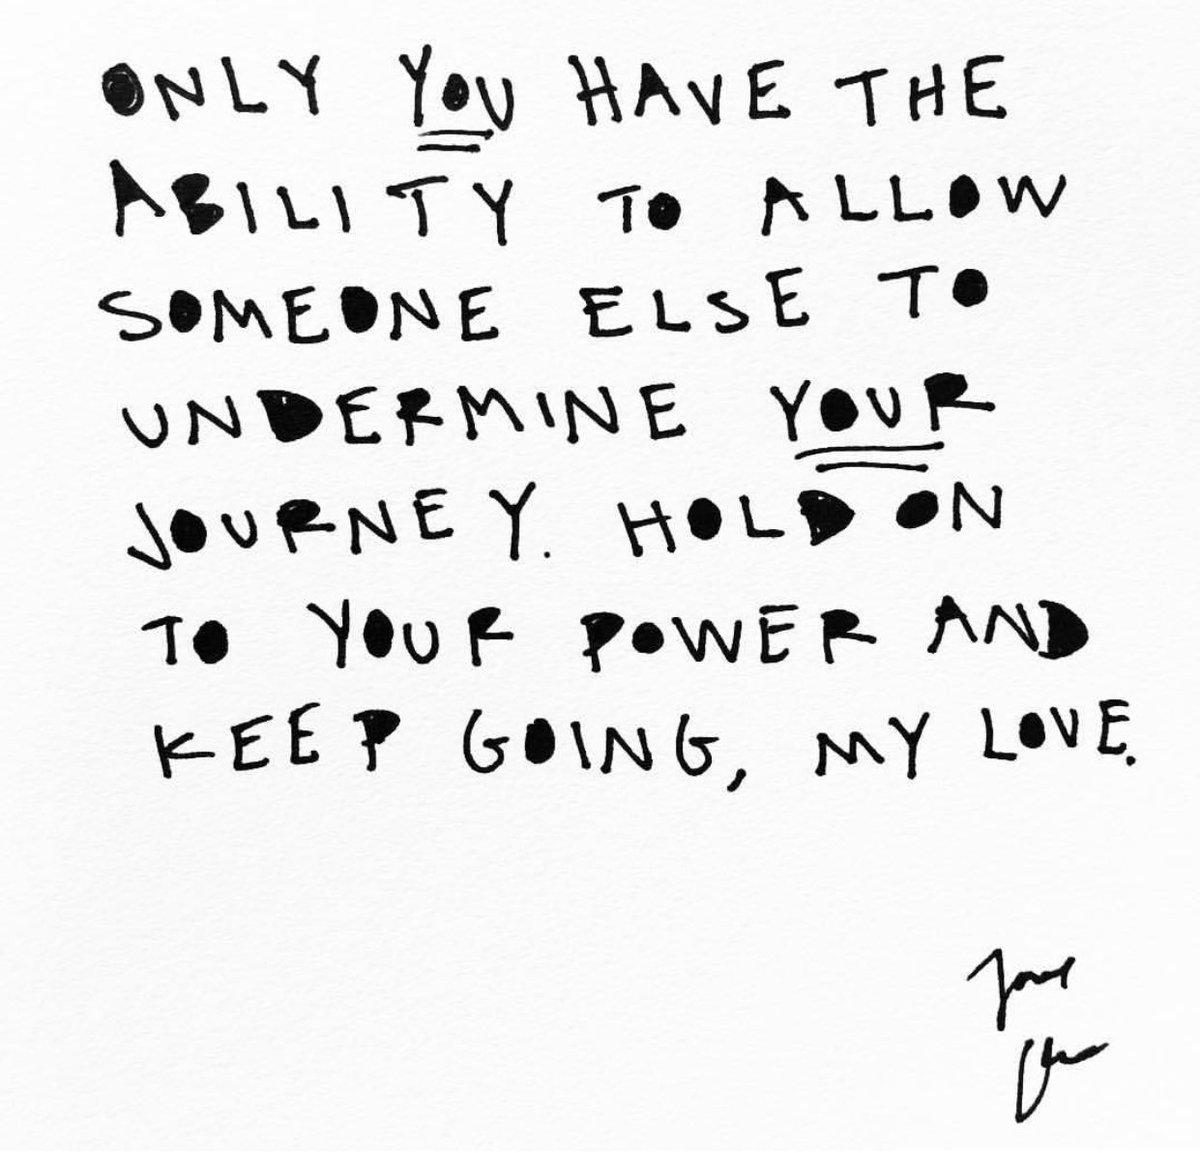 ONLY YOU HAVE THE
ABILITY TO ALLOW
SOMEONE ELSE TO
UNDERMINE YOUR
JOURNEY. HOLD ON
TO YOUR POWER AND
KEEP GOING, MY LOVE.